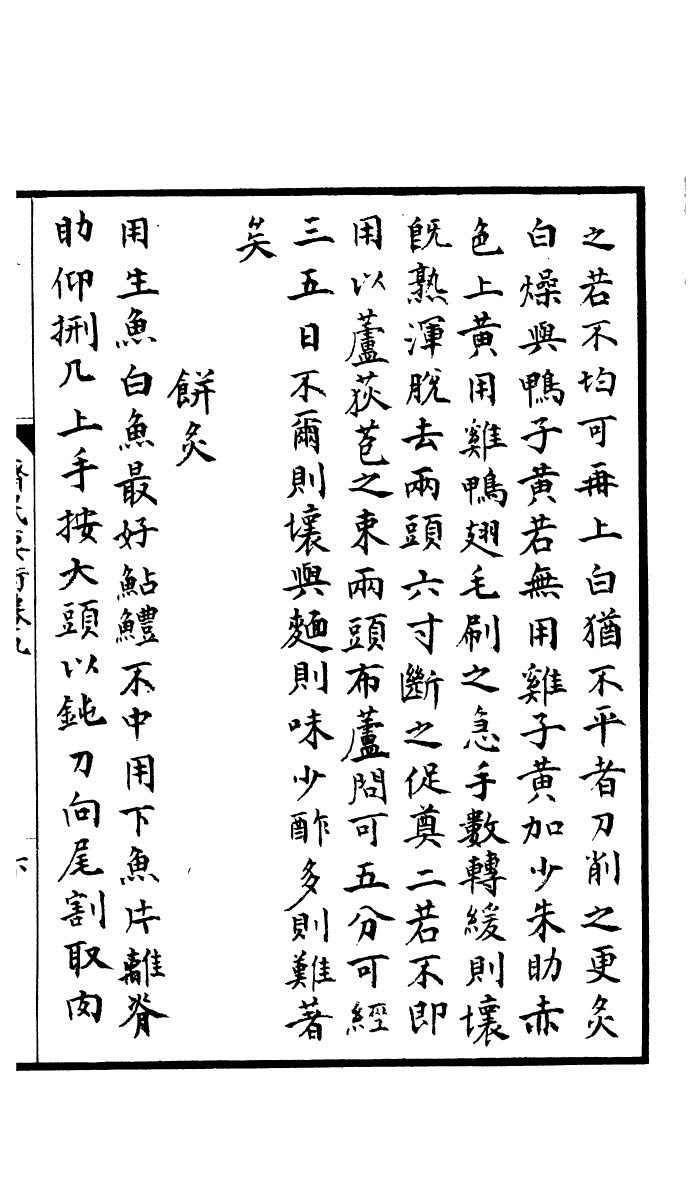 之若不均可再上白猶不平者刀削之更灸
白燥與鴨子黄若無用雞子黄加少朱助赤
色上黄用雞鴨翅毛刷之急手數轉緩則壞
旣熟渾脫去兩頭六寸斷之促奠二若不即
用以蘆荻苞之束兩頭布蘆問可五分可經
三五日不爾則壞與麵則味少酢多則難著
矣
餅灸
用生魚白魚最好鮎鱧不中用下魚片離脊
肋仰捌几上手按大頭以鈍刀向尾割取肉
齊民要術卷九